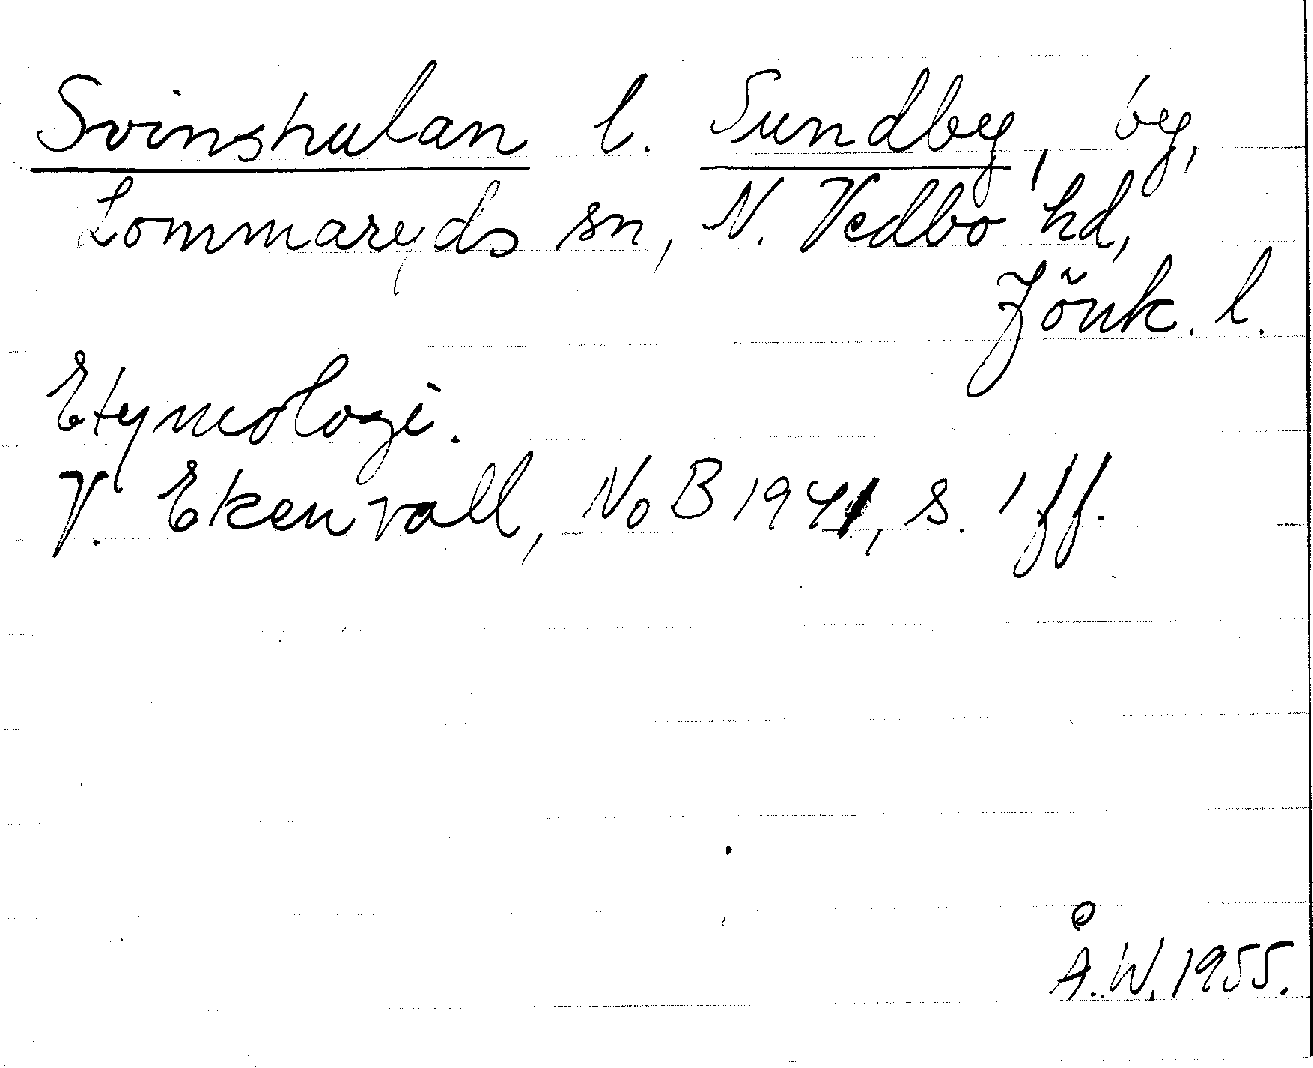 Svinshulan l. Sundby, by,
Lommaryds sn, N. Vedbo hd,
Jönk. l.
Etymologi.
V. Ekenvall, NoB 1941, s. 1 ff.
Å.W. 1955.